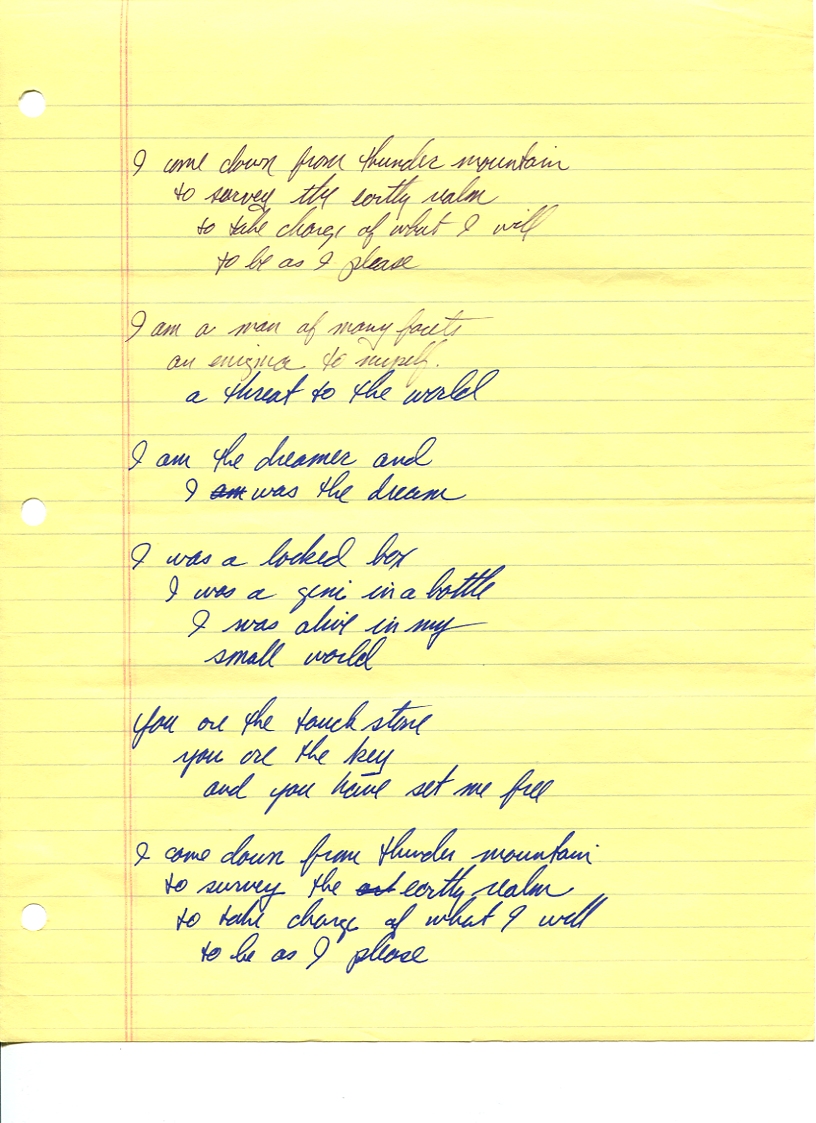 I come down from thunder mountain
to survey the eartly realm
to take charge of what I will
to be as I please
I am a man of many facets
an enigma to myself.
a threat to the world
I am the dreamer and
I am was the dream
I was a locked box
I was a geni in a bottle
I was alive in my
small world
you are the touch stone
you are the key
and you have set me free
I come down from thunder mountain
to survey the eartly realm
to take charge of what I will
to be as I please